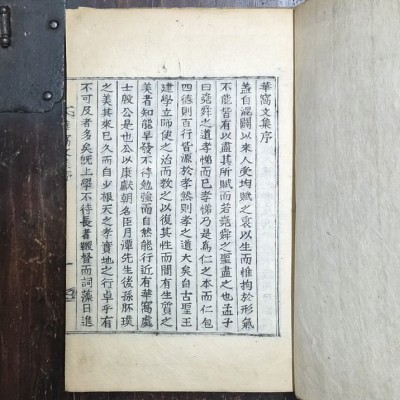 華窩文集序
盖自混闢以来人受均賦之衷以生而惟拘於形氣
不能皆有以盡其所賦而若堯舜之聖盡之也孟子
曰堯舜之道孝悌而已孝悌乃是為仁之本而仁包
四德則百行皆源於孝然則孝之道大矣自古聖王
建學立師使之治而教之以復其性而間有生質之
美者知能早發不待勉強而自然能行近有華窩處
士殷公是也公以康獻朝名臣月潭先生後孫胚璞
之美其来已久而自少根天之孝實地之行卓乎有
不可及者多矣旣上學不待長者鞭督而詞藻日進